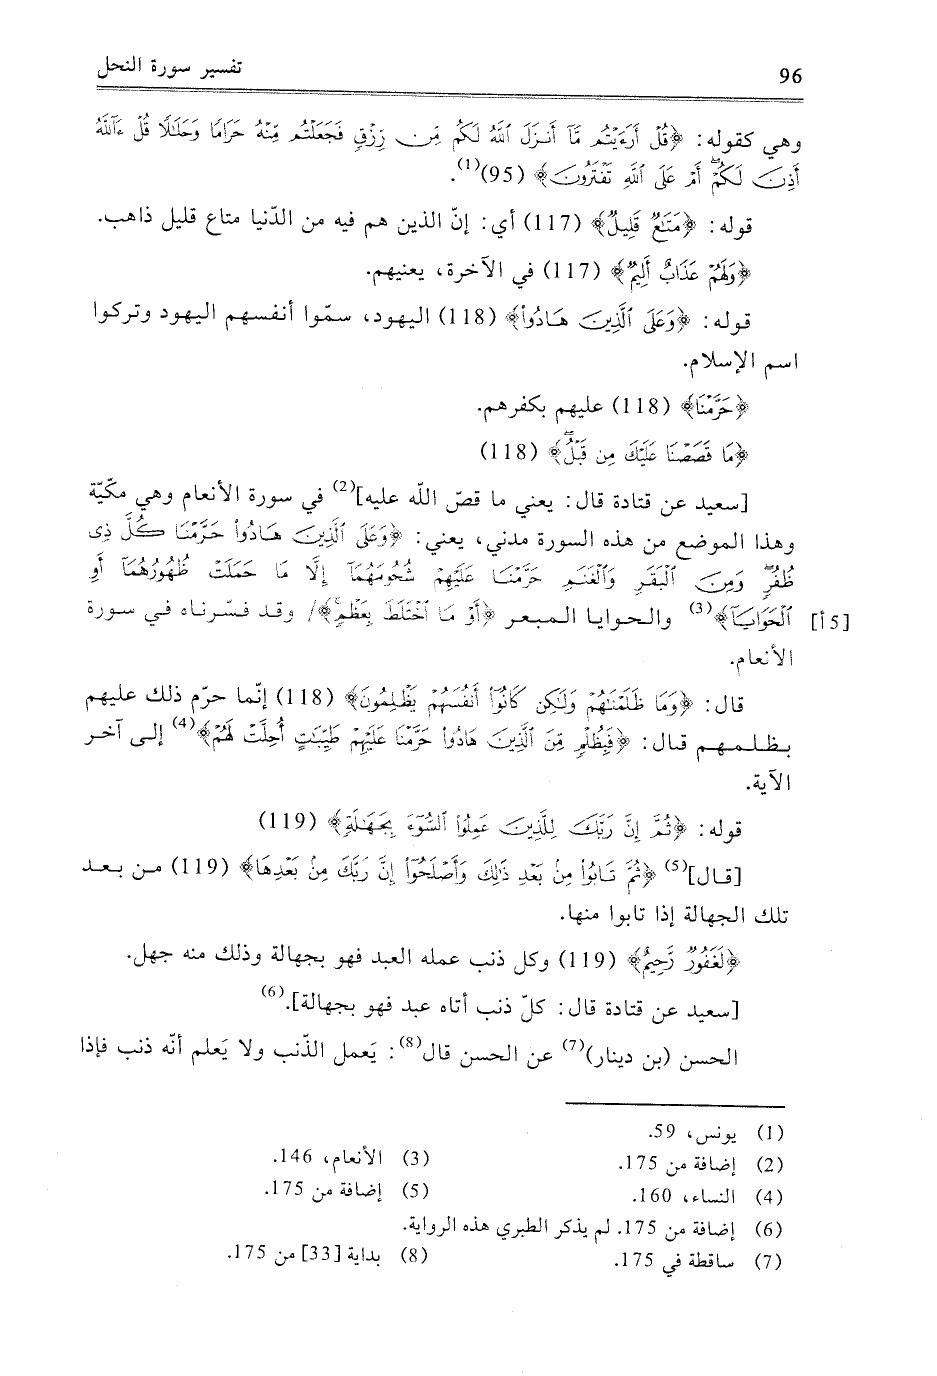 96
تفسير سورة النحل
وهي كقوله: ﴿قُلْ أَرَءَيْتُم مَّآ أَنزَلَ ٱللَّهُ لَكُم مِّن رِّزْقٍ فَجَعَلْتُم مِّنْهُ حَرَامًا وَحَلَٰلًا قُلْ ءَآللَّهُ
أَذِنَ لَكُمْ أَمْ عَلَى ٱللَّهِ تَفْتَرُونَ﴾ (95)(1).
قوله: ﴿مَتَٰعٌ قَلِيلٌ﴾ (117) أي: إنّ الذين هم فيه من الدّنيا متاع قليل ذاهب.
﴿وَلَهُمْ عَذَابٌ أَلِيمٌ﴾ (117) في الآخرة، يعنيهم.
قوله: ﴿وَعَلَى ٱلَّذِينَ هَادُوا۟﴾ (118) اليهود، سمّوا أنفسهم اليهود وتركوا
اسم الإسلام.
﴿حَرَّمْنَا﴾ (118) عليهم بكفرهم.
﴿مَا قَصَصْنَا عَلَيْكَ مِن قَبْلُ﴾ (118)
[سعيد عن قتادة قال: يعني ما قصّ الله عليه](2) في سورة الأنعام وهي مكيّة
وهذا الموضع من هذه السورة مدني، يعني: ﴿وَعَلَى ٱلَّذِينَ هَادُوا۟ حَرَّمْنَا كُلَّ ذِى
ظُفُرٍ وَمِنَ ٱلْبَقَرِ وَٱلْغَنَمِ حَرَّمْنَا عَلَيْهِمْ شُحُومَهُمَآ إِلَّا مَا حَمَلَتْ ظُهُورُهُمَآ أَوِ
[5أ] ٱلْحَوَايَآ﴾(3) والحوايا المبعر ﴿أَوْ مَا ٱخْتَلَطَ بِعَظْمٍ﴾/ وقد فسّرناه في سورة
الأنعام.
قال: ﴿وَمَا ظَلَمْنَٰهُمْ وَلَٰكِن كَانُوٓا۟ أَنفُسَهُمْ يَظْلِمُونَ﴾ (118) إنّما حرّم ذلك عليهم
بظلمهم قال: ﴿فَبِظُلْمٍ مِّنَ ٱلَّذِينَ هَادُوا۟ حَرَّمْنَا عَلَيْهِمْ طَيِّبَٰتٍ أُحِلَّتْ لَهُمْ﴾(4) إلى آخر
الآية.
قوله: ﴿ثُمَّ إِنَّ رَبَّكَ لِلَّذِينَ عَمِلُوا۟ ٱلسُّوٓءَ بِجَهَٰلَةٍ﴾ (119)
[قال](5) ﴿ثُمَّ تَابُوا۟ مِنۢ بَعْدِ ذَٰلِكَ وَأَصْلَحُوٓا۟ إِنَّ رَبَّكَ مِنۢ بَعْدِهَا﴾ (119) من بعد
تلك الجهالة إذا تابوا منها.
﴿لَغَفُورٌ رَّحِيمٌ﴾ (119) وكل ذنب عمله العبد فهو بجهالة وذلك منه جهل.
[سعيد عن قتادة قال: كلّ ذنب أتاه عبد فهو بجهالة].(6)
الحسن (بن دينار)(7) عن الحسن قال(8): يَعمل الذّنب ولا يَعلم أنّه ذنب فإذا
(1) يونس، 59.
(2) إضافة من 175. (3) الأنعام، 146.
(4) النساء، 160. (5) إضافة من 175.
(6) إضافة من 175. لم يذكر الطبري هذه الرواية.
(7) ساقطة في 175. (8) بداية [33] من 175.